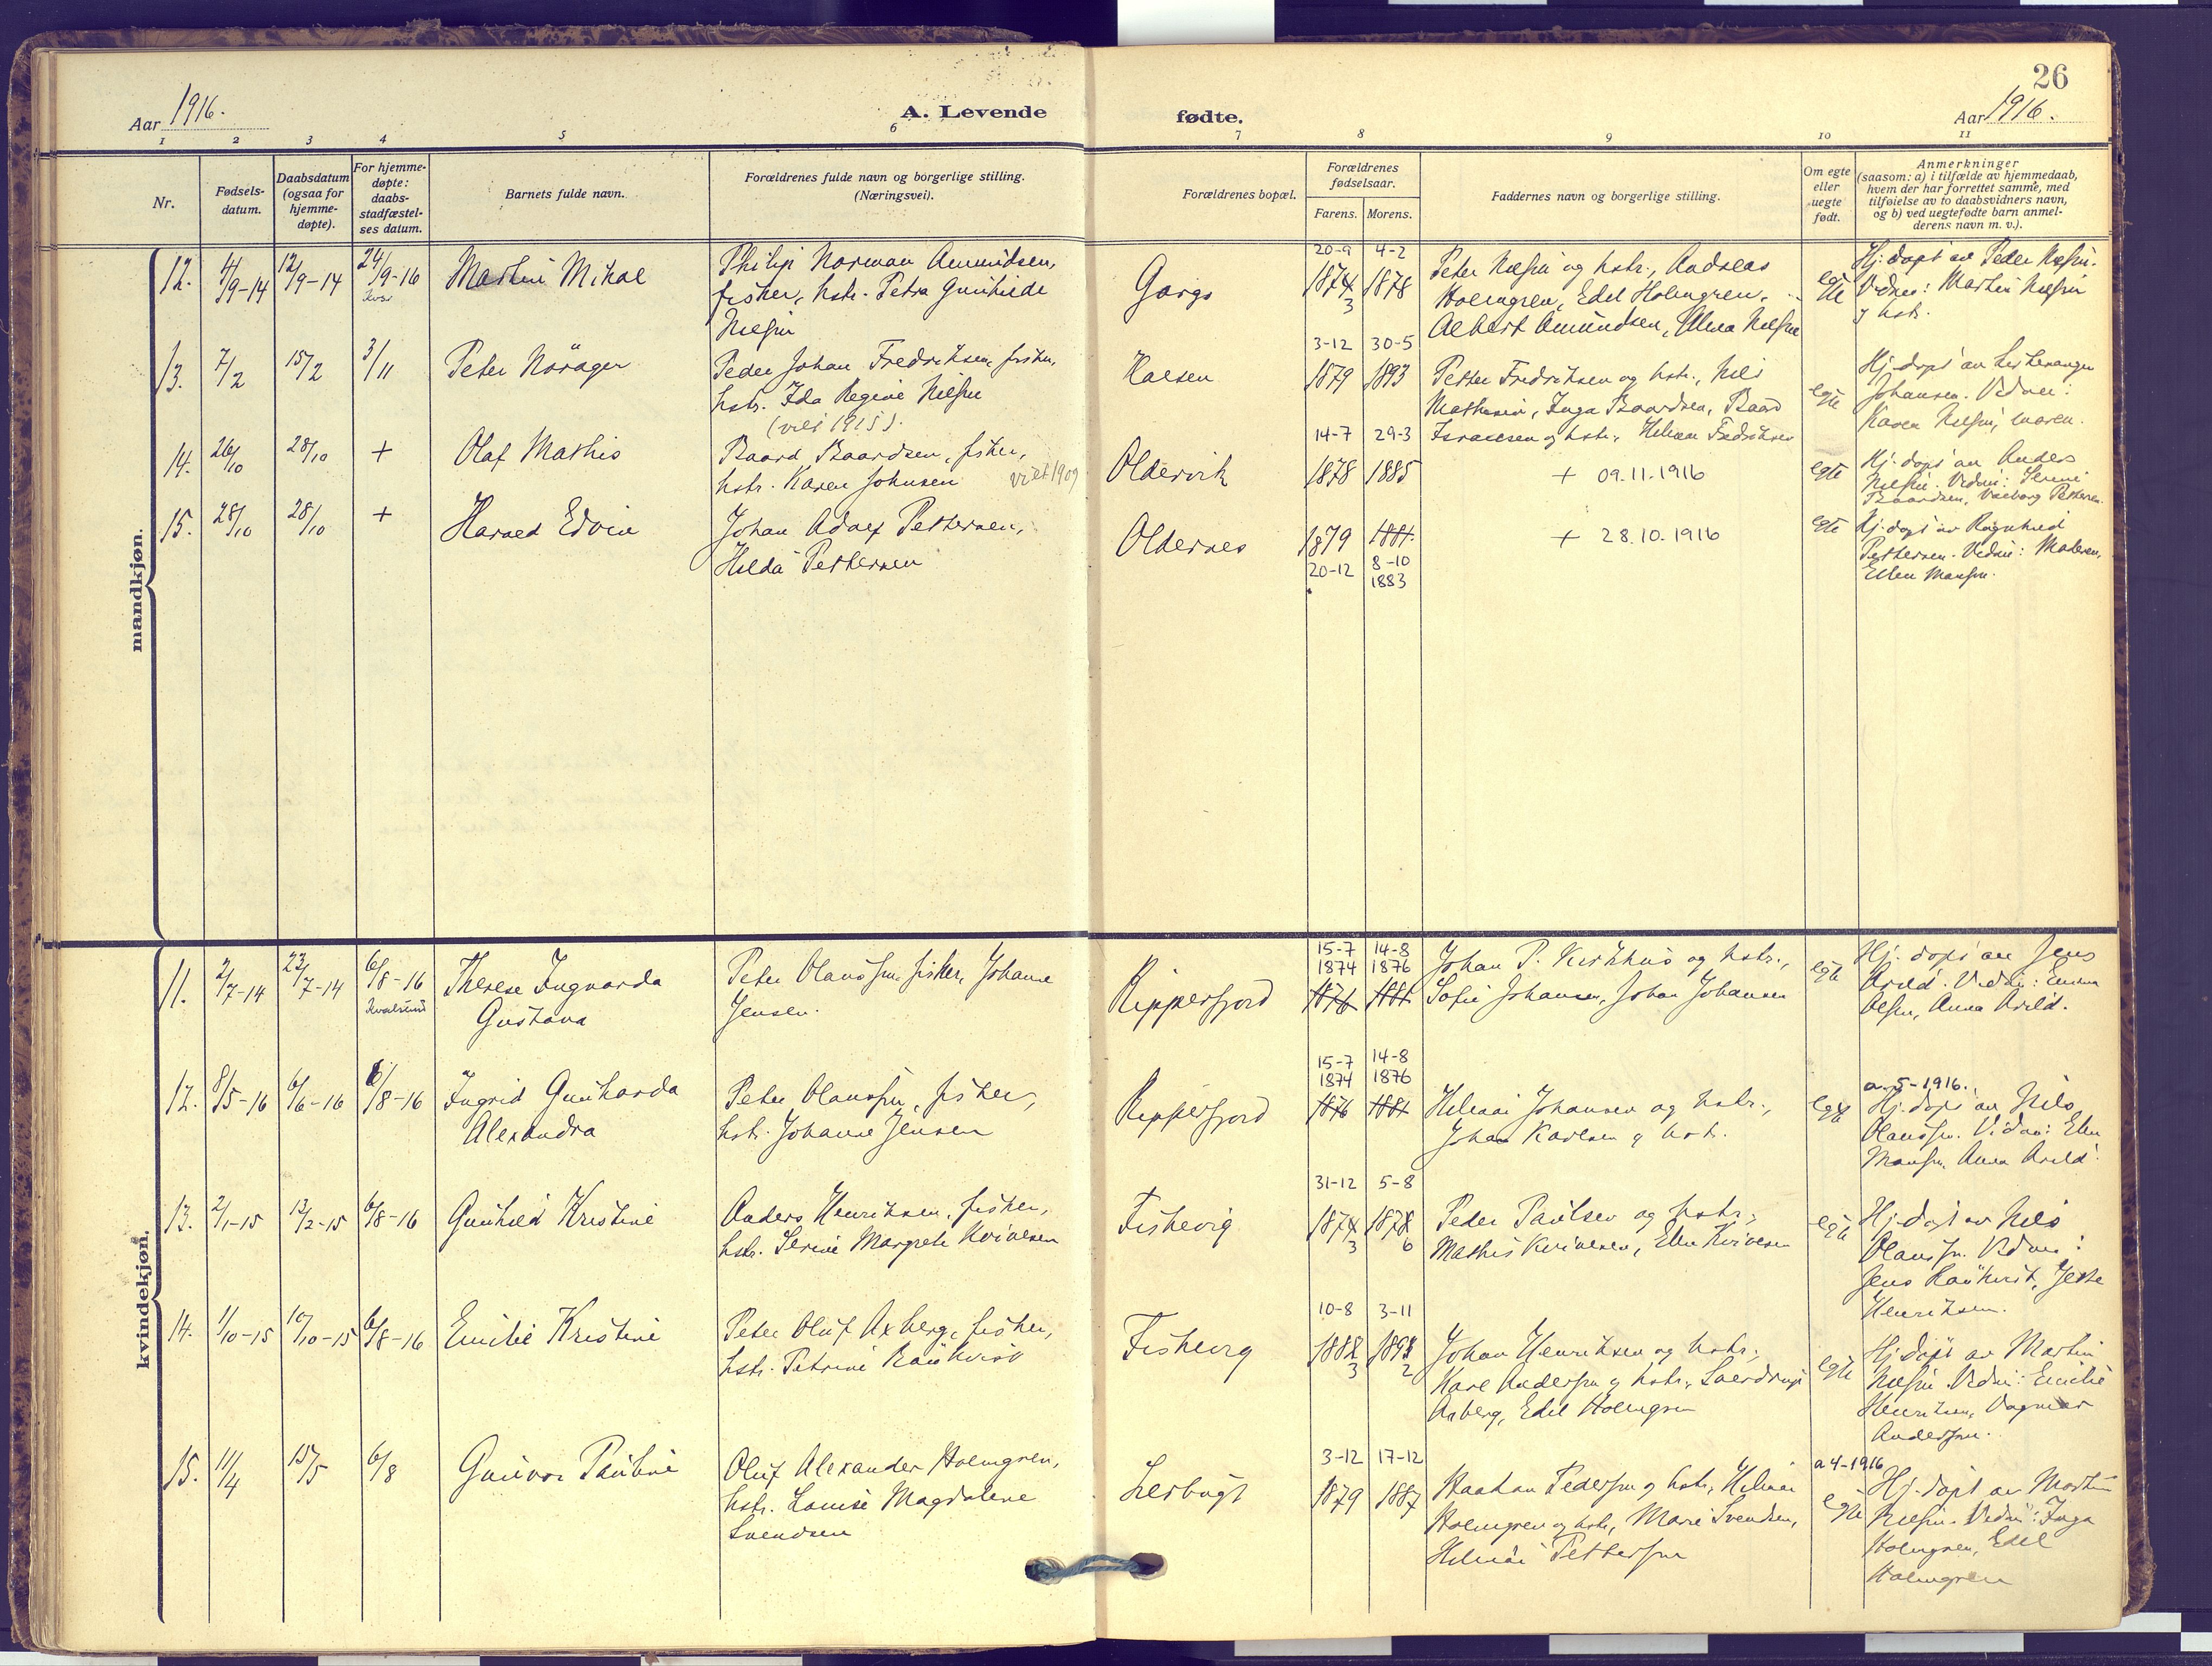 26
Aar 1916.
A. Levende
fødte.
Aar 1916.
1 2 3 4 5 6 7 8 9 10 11
Nr.
Fødsels-
datum.
Daabsdatum
(ogsaa for
hjemme-
døpte).
For hjemme-
døpte:
daabs-
stadfæstel-
ses datum.
Barnets fulde navn.
Forældrenes fulde navn og borgerlige stilling.
(Næringsvei).
Forældrenes bopæl.
Forældrenes
fødselsaar.
Farens. Morens.
Faddernes navn og borgerlige stilling.
Om egte
eller
uegte
født.
Anmerkninger
(saasom: a) i tilfælde av hjemmedaab,
hvem der har forrettet samme, med
tilføielse av to daabsvidners navn,
og b) ved uegtefødte barn anmel-
derens navn m. v.).
mandkjøn.
12. 4/9-14 12/9-14 24/9-16
Mikal
Philip Norman Amundsen,
fisker, hstr. Petra Gunhilde
Nilsen
Gargo
20-9 4-2
1874 1878
3
Peter Nilsen og hstr., Andreas
Holmgren, Edel Holmgren,
Albert Amundsen, Alma Nilsen
egte
Hj. døpt av Peder Nilsen.
Vidner: Martin Nilsen
og hstr.
13. 7/2 15/2 3/11
Peter Nørager
Peder Johan Fredriksen, fisker,
hstr. Ida Regine Nilsen
(viet 1915).
3-12 30-5
1879 1893
Petter Fredriksen og hstr., Nils
Mathisen, Inga Baardsen, Baard
Israelsen og hstr., Fredriksen
egte
Hj. døpt av
Johansen. Vidner:
Karen Nilsen,
14. 26/10 28/10 +
Olaf Mathis
Baard Baardsen, fisker,
hstr. Karen Johnsen viet 1909
Oldervik
14-7 29-3
1878 1885
+ 09.11.1916
egte
Hj. døpt av Anders
Nilsen. Vidner: Serine
Baardsen, Petersen
15. 28/10 28/10 +
Harald Edvin
Johan Adolf Pettersen,
Hilda Pettersen
Oldernes
1879 1881
20-12 8-10
1883
+ 28.10.1916
egte
Hj. døpt av Ragnhild
Pettersen. Vidner:
Ellen Monsen.
kvindekjøn.
11. 2/7-14 23/7-14 6/8-16
Kvalsund
Therese Ingvarda
Gustava
Peter Olaussen, fisker, Johanne
Jensen.
Repperfjord
15-7 14-8
1874 1876
1876 1881
Johan P. Kirkhus og hstr.,
Sofie Johansen, Johan Johansen
egte
Hj. døpt av Jens
Arild. Vidner: Emma
Olsen, Anna Arild.
12. 8/5-16 6/6-16 6/8-16
Ingrid Gunharda
Alexandra
Peter Olaussen, fisker,
hstr. Johanne Jensen
Repperfjord
15-7 14-8
1874 1876
1876 1881
Johansen og hstr.,
Johan Karlsen og hstr.
egte
a. 5-1916.
Hj. døpt av Nils
Olaussen. Vidner: Ellen
Monsen, Anna Arild.
13. 2/1-15 13/2-15 6/8-16
Gunhild Kristine
Anders Henriksen, fisker,
hstr. Serine Margrete Kvivesen
Fiskevig
31-12 5-8
1874 1878
3 6
Peder Paulsen og hstr.,
Mathis Kvivesen, Ellen Kvivesen
egte
Hj. døpt av Nils
Olaussen. Vidner:
Jens Raukvist,
Henriksen.
14. 1/10-15 10/10-15 6/8-16
Emilie Kristine
Peter Oluf Axberg, fisker,
hstr. Petrine Raukvist
Fiskevig
10-8 3-11
1882 1891
3 2
Johan Henriksen og hstr.,
Karl Andersen og hstr., Sverdrup
Axberg, Edel Holmgren
egte
Hj. døpt av Martin
Nilsen. Vidner: Emilie
Henriksen, Dagmar
Andersen.
15. 11/4 15/5 6/8
Gunvor Pauline
Oluf Alexander Holmgren,
hstr. Louise Magdalene
Svendsen
Lerbugt
3-12 17-12
1879 1887
Haakon Pedersen og hstr.,
Holmgren og hstr., Marie Svendsen,
Pettersen
a 4-1916
egte
Hj. døpt av Martin
Nilsen. Vidner: Inga
Holmgren, Edel
Holmgren